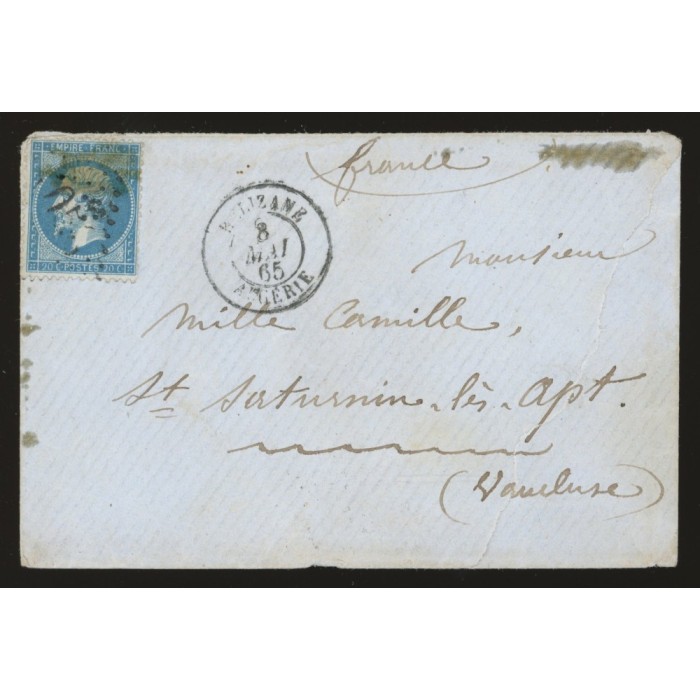 EMPIRE FRANC
20 C POSTES 20 C
RELIZANE
8
MAI
65
ALGÉRIE
france
Monsieur
Mille Camille,
St Saturnin-lès-Apt.
(Vaucluse)